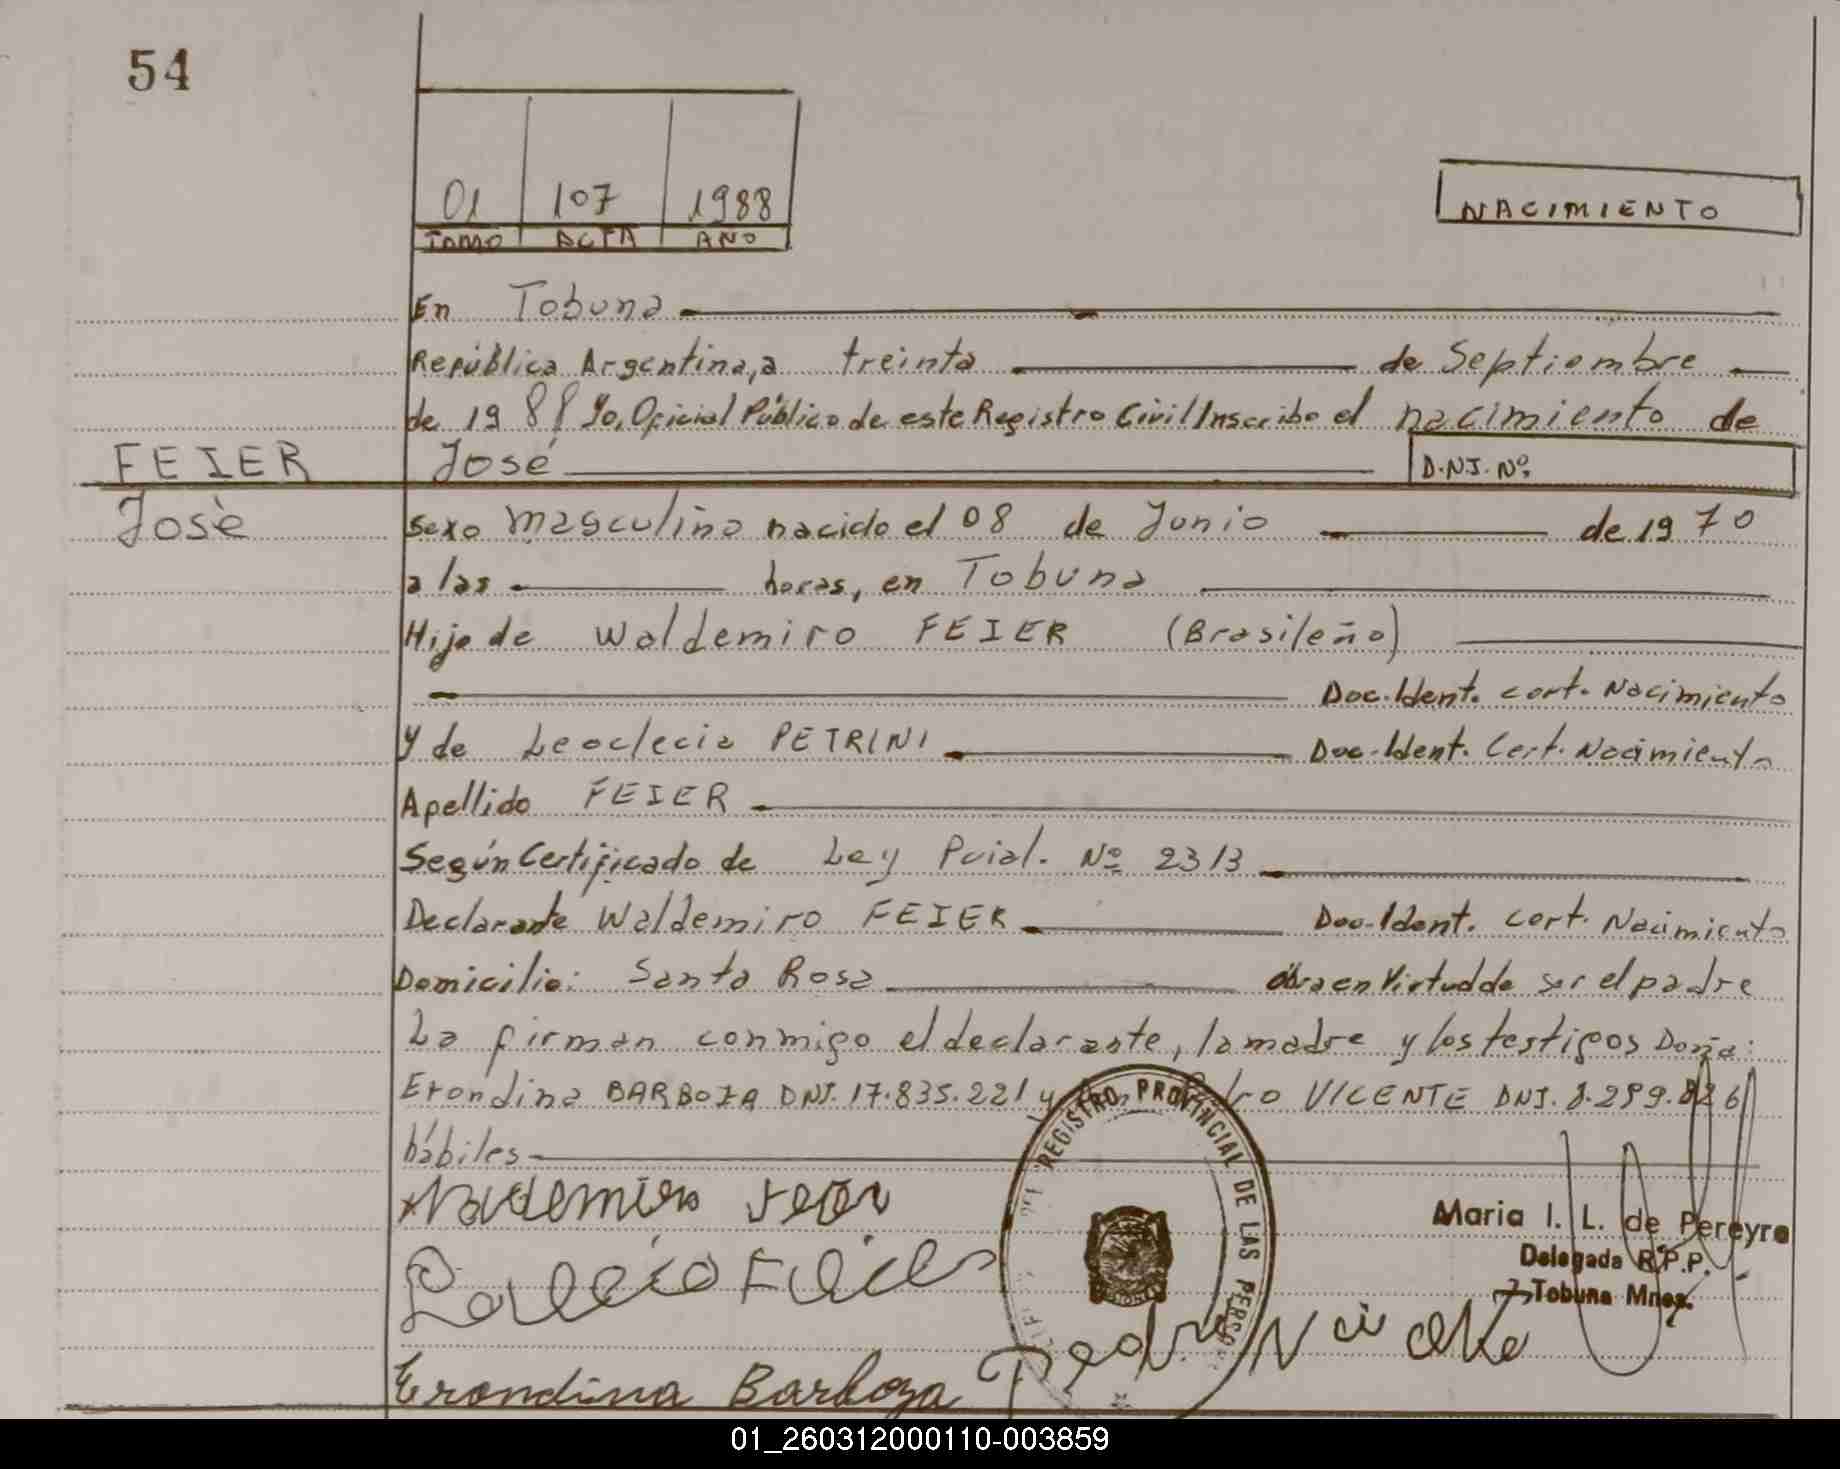 54
01 107 1988
TOMO ACTA AÑO
NACIMIENTO
En Tobuna
República Argentina, a treinta de Septiembre
de 1988 Yo, Oficial Público de este Registro Civil Inscribo el nacimiento de
FEIER José D.N.I. Nº.
José Sexo masculino nacido el 08 de Junio de 1970
a las horas, en Tobuna
Hijo de Waldemiro FEIER (Brasileño)
Doc. Ident. cert. Nacimiento
y de Leoclecia PETRINI Doc. Ident. Cert. Nacimiento
Apellido FEIER
Según Certificado de Ley Pcial. Nº 2313
Declarante Waldemiro FEIER Doc. Ident. cert. Nacimiento
Domicilio: Santa Rosa obra en Virtud de ser el padre
La firman conmigo el declarante, la madre y los testigos Doña:
Erondina BARBOZA DNI. 17.835.221 y VICENTE DNI. 8.299.826
hábiles
REGISTRO PROVINCIAL DE LAS PERSO
Maria I. L. de Pereyra
Delegada R.P.P.
Tobuna Mnes.
Erondina Barboza
01_260312000110-003859